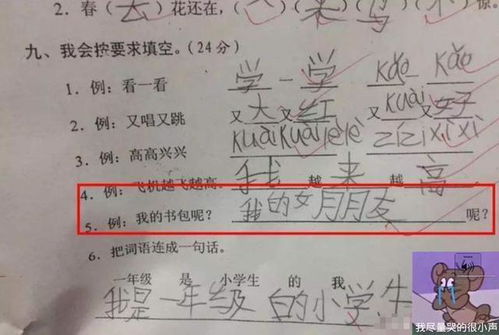 2. 春(去)花还在,(人)来(鸟)不惊。
九、我会按要求填空。(24分)
1. 例：看一看 学一学 kǎo kǎo
2. 例：又唱又跳 又大又红 又kuài又好
3. 例：高高兴兴 kuàikuàilèlè zǐzǐxìxì
4. 例：飞机越飞越高。 我越来越高。
5. 例：我的书包呢? 我的女月月友呢?
6. 把词语连成一句话。
一年级 是 小学生 的 我
我是一年级白的小学生
我尽量哭的很小声